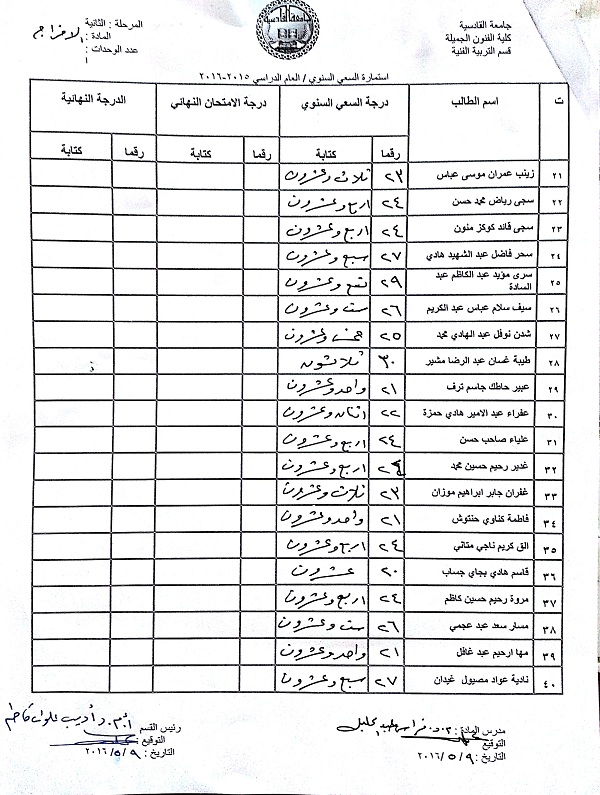 جامعة القادسية
كلية الفنون الجميلة
قسم التربية الفنية
المرحلة : الثانية
المادة : الاخراج
عدد الوحدات :
استمارة السعي السنوي / العام الدراسي ٢٠١٥-٢٠١٦
ت اسم الطالب درجة السعي السنوي درجة الامتحان النهائي الدرجة النهائية
رقما كتابة رقما كتابة رقما كتابة
٢١ زينب عمران موسى عباس ٢٣ ثلاث وعشرون
٢٢ سجى رياض محمد حسن ٢٤ اربع وعشرون
٢٣ سجى قائد كوكز منون ٢٤ اربع وعشرون
٢٤ سحر فاضل عبد الشهيد هادي ٢٧ سبع وعشرون
٢٥ سرى مؤيد عبد الكاظم عبد السادة ٢٩ تسع وعشرون
٢٦ سيف سلام عباس عبد الكريم ٢٦ ست وعشرون
٢٧ شدن نوفل عبد الهادي محمد ٢٥ خمس وعشرون
٢٨ طيبة غسان عبد الرضا مشير ٣٠ ثلاثون
٢٩ عبير حاطك جاسم ترف ٢١ واحد وعشرون
٣٠ عفراء عبد الامير هادي حمزة ٢٢ اثنان وعشرون
٣١ علياء صاحب حسن ٢٤ اربع وعشرون
٣٢ غدير رحيم حسين محمد ٢٤ اربع وعشرون
٣٣ غفران جابر ابراهيم موزان ٢٣ ثلاث وعشرون
٣٤ فاطمة كناوي حنتوش ٢١ واحد وعشرون
٣٥ الق كريم ناجي متاني ٢٤ اربع وعشرون
٣٦ قاسم هادي بجاي جساب ٢٠ عشرون
٣٧ مروة رحيم حسين كاظم ٢٤ اربع وعشرون
٣٨ مسار سعد عبد عجمي ٢٦ ست وعشرون
٣٩ مها ارحيم عبد غافل ٢١ واحد وعشرون
٤٠ نادية عواد مصيول غيدان ٢٧ سبع وعشرون
مدرس المادة : م.د. فراس عبد الجليل
التوقيع
التاريخ : ٢٠١٦/٥/٩
رئيس القسم أ.م.د أديب علوان كاظم
التوقيع :
التاريخ : ٢٠١٦/٥/٩